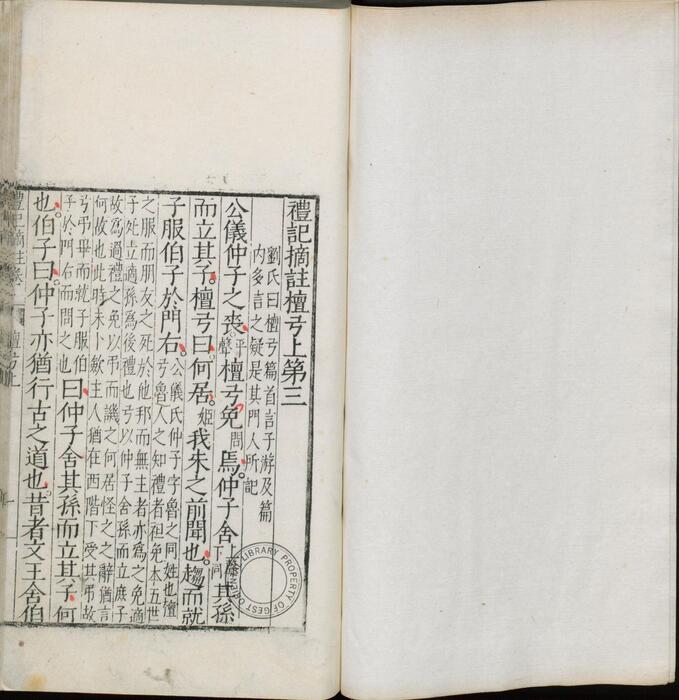 禮記摘註檀弓上第三
劉氏曰檀弓篇首言子游及篇
內多言之疑是其門人所記
公儀仲子之喪平聲檀弓免問焉仲子舍上聲下同其孫
而立其子檀弓曰何居姬我未之前聞也趨而就
子服伯子於門右公儀氏仲子字魯之同姓也檀
弓魯人之知禮者袒免本五世
之服而朋友之死於他邦而無主者亦爲之免適
子死立適孫爲後禮也弓以仲子舍孫而立庶子
故爲過禮之免以弔而譏之何居怪之之辭猶言
何故也此時未卜歛主人猶在西階下受其弔故
弓弔畢而就子服伯
子於門右而問之也曰仲子舍其孫而立其子何
也伯子曰仲子亦猶行古之道也昔者文王舍伯
禮記摘註卷
檀弓上
LIBRARY PROPERTY OF GEST